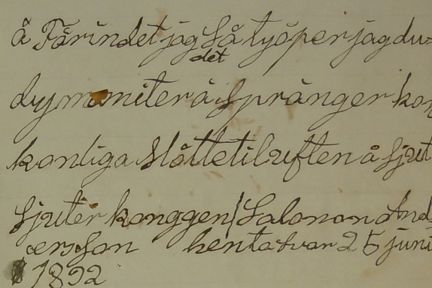 å Fårindet jag Så työper jag du=
det
dymmiter å Spränger kon
konliga Slåttet i luften å Sjut
Sjuter konggen / Salonon And
ersson hentat var 25 juni
1892